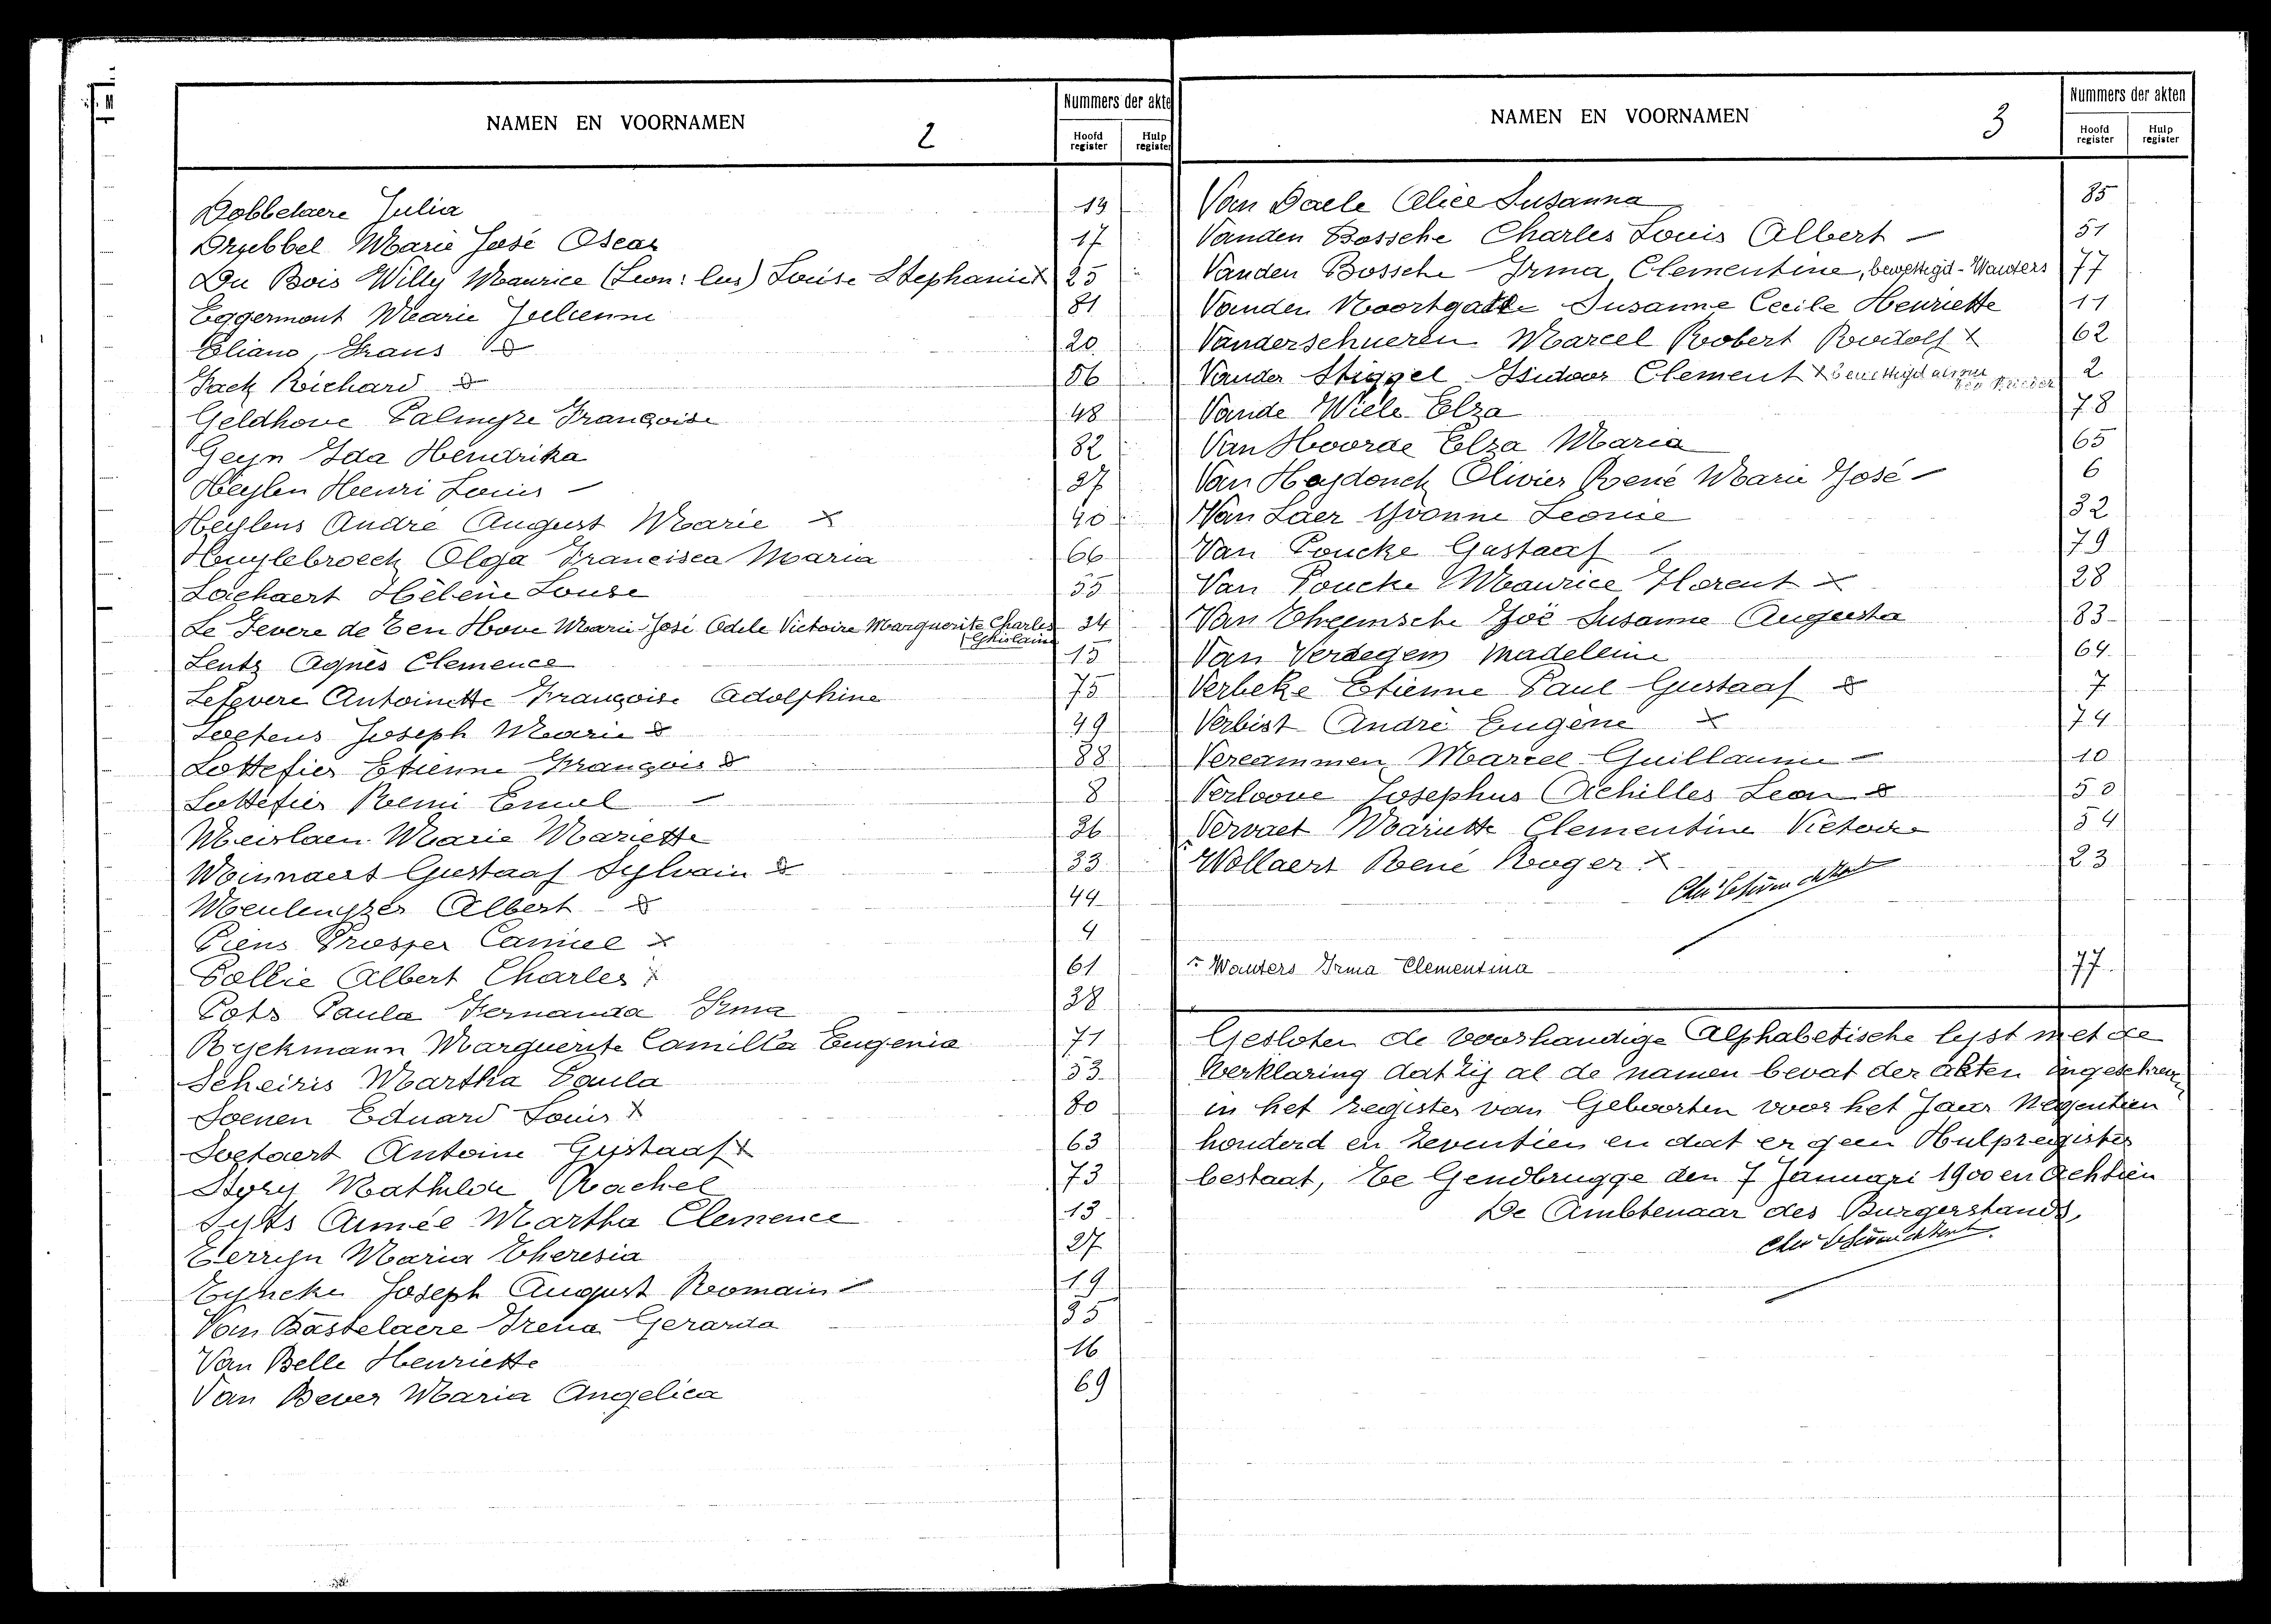 NAMEN EN VOORNAMEN
2
Nummers der akte
Hoofd register
Hulp register
Dobbelaere Julia 19
Drubbel Marie José Oscar 17
Du Bois Willy Maurice (Leon: lus) Louise Stephanie x 25
Eggermont Marie Julienne 81
Eliano, Frans 20
Fack Richard 86
Geldhove Palmyre Françoise 48
Geyn Ida Hendrika 82
Heylen Henri Louis - 37
Heylens André August Marie x 40
Huylebroeck Olga Francisca Maria 66
Lachaert Hélène Louise 55
Le Fevere de Ten Hove Marie José Odile Victoire Marguerite Charles 34
(Ghislaine
Lentz Agnès Clemence 15
Lefevere Antoinette Françoise Adolphine 75
Loetens Joseph Marie 49
Lottefier Etienne François 88
Lottefier Remi Emiel - 8
Meirlaen Marie Mariette 36
Minnaert Gustaaf Sylvain 33
Meulenyzer Albert 44
Piens Prosper Camiel x 4
Pollie Albert Charles x 61
Pots Paula Fernanda Irma 38
Ryckmann Marguerite Camilla Eugenia 71
Scheiris Martha Paula 53
Soenen Eduard Louis x 80
Soetaert Antoine Gustaaf x 63
Story Mathilde Rachel 73
Syts Aimée Martha Clemence 13
Terryn Maria Theresia 27
Tyncke Joseph August Romain - 19
Van Bastelaere Irena Gerarda 35
Van Belle Henriette 16
Van Bever Maria Angelica 69
NAMEN EN VOORNAMEN
3
Nummers der akten
Hoofd register
Hulp register
Van Daele Alice Susanna 85
Vanden Bossche Charles Louis Albert - 51
Vanden Bossche Irma Clementine, bewettigd - Wauters 77
Vanden Noortgatte Susanne Cecile Henriette 11
Vanderschueren Marcel Robert Rudolf x 62
Vander Stiggel Isidoor Clement x 2
Vande Wiele Elza 78
Van Hoorde Elza Maria 65
Van Heydonck Olivier René Marie José - 6
Van Laer Yvonne Leonie 32
Van Poucke Gustaaf - 79
Van Poucke Maurice Florent x 28
Van Theemsche Zoë Susanne Augusta 83
Van Verdegem Madeleine 64
Verbeke Etienne Paul Gustaaf 7
Verbist André Eugène x 74
Vercammen Marcel Guillaume - 10
Verloove Josephus Achilles Leon 50
Vervaet Mariette Clementine Victoire 54
Wollaert René Roger x 23
Wauters Irma Clementina 77
Gesloten de voorhandige Alphabetische lyst met de
Verklaring dat zij al de namen bevat der akten ingeschreven
in het register van Geboorten voor het Jaar Negentien
honderd en zeventien en dat er geen Hulpregister
bestaat, Te Gendbrugge den 7 Januari 1900 en Achtien
De Ambtenaar des Burgerstands,